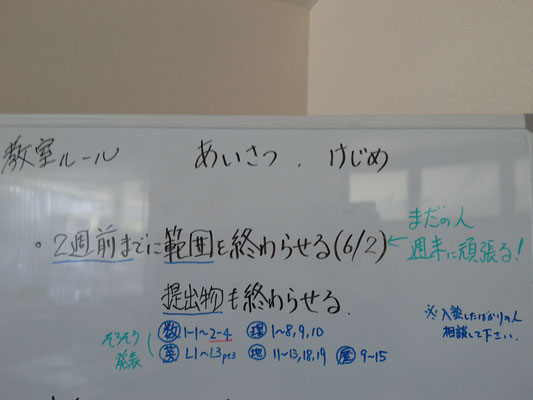 教室ルール　あいさつ．けじめ
。2週前までに範囲を終わらせる(6/2)←まだの人
週末に頑張る!
提出物も終わらせる
※入塾したばかりの人
相談して下さい.
そろそろ
発表
(数)1-1~2-4 (理)1~8,9,10
(英)L1~L3pt3 (地)11~13,18,19 (歴)9~15